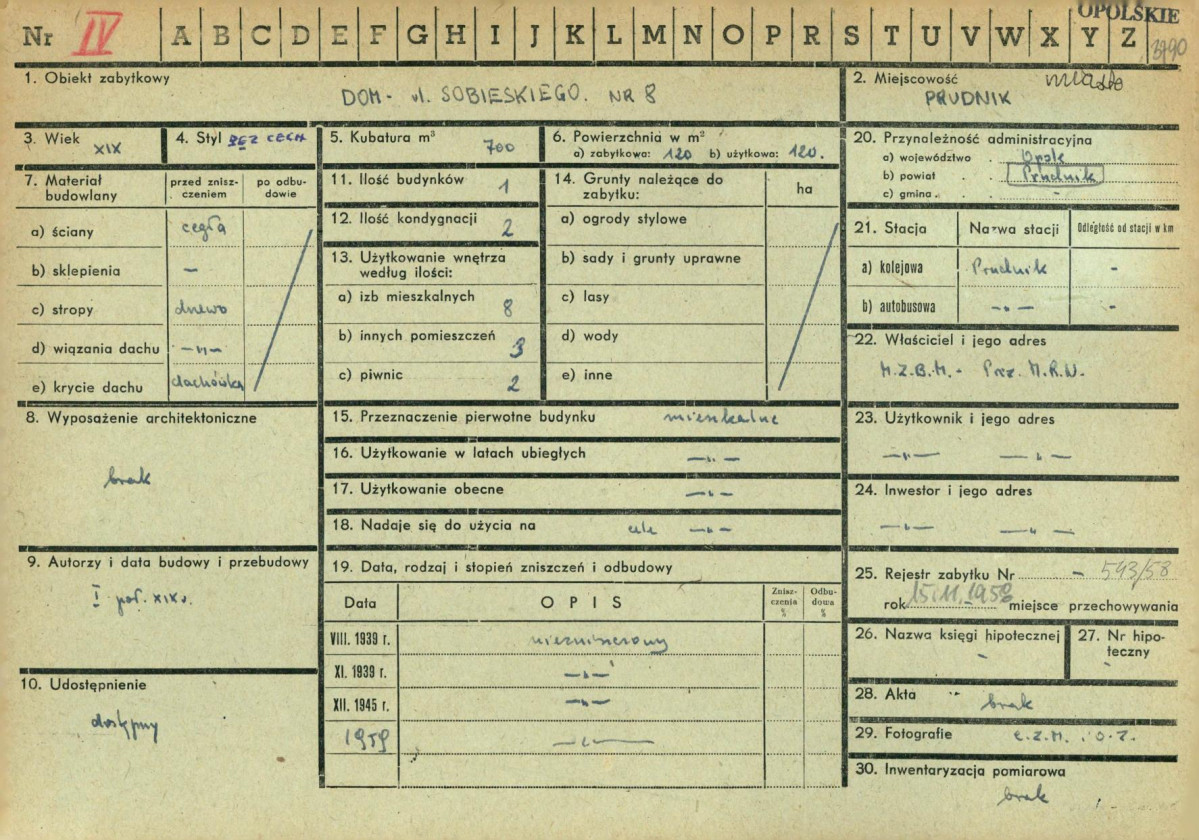 OPOLSKIE
Nr IV A B C D E F G H I J K L M N O P R S T U V W X Y Z 3990
1. Obiekt zabytkowy
DOM - ul. SOBIESKIEGO. NR 8
2. Miejscowość miasto
PRUDNIK
3. Wiek XIX
4. Styl BEZ CECH
5. Kubatura m³ 700
6. Powierzchnia w m²
a) zabytkowa: 120 b) użytkowa: 120.
20. Przynależność administracyjna
a) województwo . Opole
b) powiat . . Prudnik
c) gmina . . -
7. Materiał budowlany
przed zniszczeniem
po odbudowie
a) ściany cegła
b) sklepienia -
c) stropy drewo
d) wiązania dachu -"-
e) krycie dachu dachówka
11. Ilość budynków 1
12. Ilość kondygnacji 2
13. Użytkowanie wnętrza
według ilości:
a) izb mieszkalnych 8
b) innych pomieszczeń 3
c) piwnic 2
14. Grunty należące do
zabytku:
ha
a) ogrody stylowe
b) sady i grunty uprawne
c) lasy
d) wody
e) inne
21. Stacja Nazwa stacji Odległość od stacji w km
a) kolejowa Prudnik -
b) autobusowa -"- -
22. Właściciel i jego adres
M.Z.B.M. - Prez. M.R.N.
8. Wyposażenie architektoniczne
brak
15. Przeznaczenie pierwotne budynku mieszkalne
16. Użytkowanie w latach ubiegłych -"-
17. Użytkowanie obecne -"-
18. Nadaje się do użycia na cele -"-
23. Użytkownik i jego adres
-"- -"-
24. Inwestor i jego adres
-"- -"-
9. Autorzy i data budowy i przebudowy
I poł. XIX w.
10. Udostępnienie
dostępny
19. Data, rodzaj i stopień zniszczeń i odbudowy
Data OPIS Zniszczenia % Odbudowa %
VIII. 1939 r. niezniszczony
XI. 1939 r. -"-
XII. 1945 r. -"-
1959 -"-
25. Rejestr zabytku Nr - 593/58
rok 15.11.1958 miejsce przechowywania
26. Nazwa księgi hipotecznej
-
27. Nr hipoteczny
-
28. Akta brak
29. Fotografie
30. Inwentaryzacja pomiarowa
brak